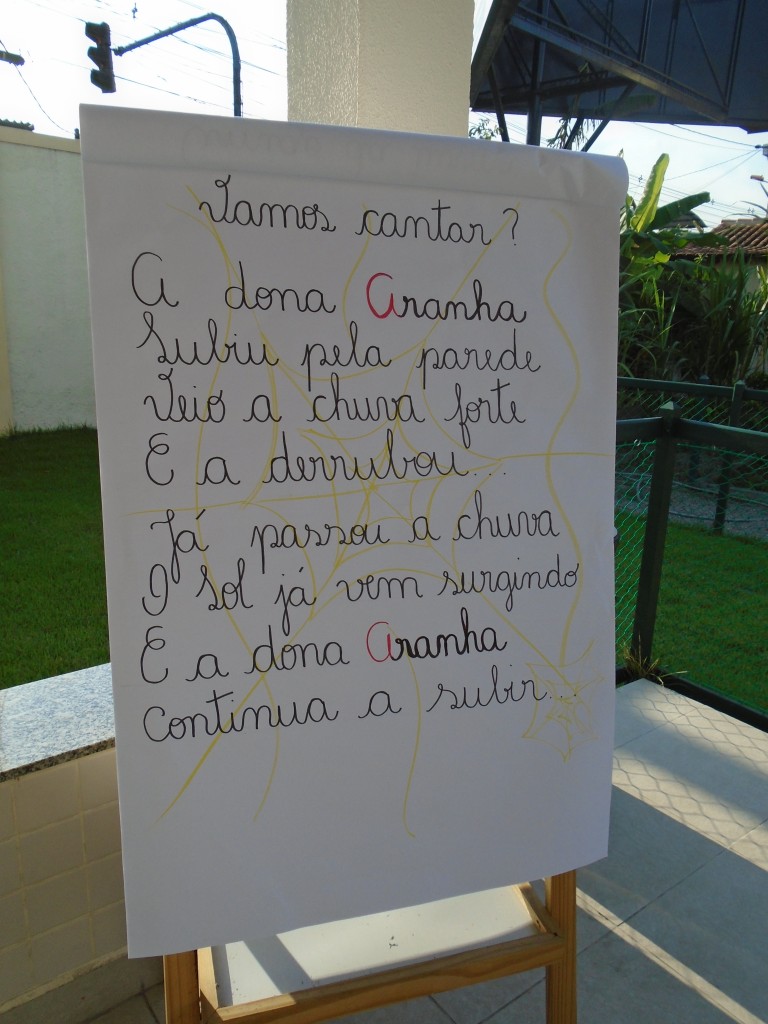 Vamos cantar?
A dona Aranha
Subiu pela parede
Veio a chuva forte
E a derrubou...
Já passou a chuva
O Sol já vem surgindo
E a dona Aranha
Continua a subir...